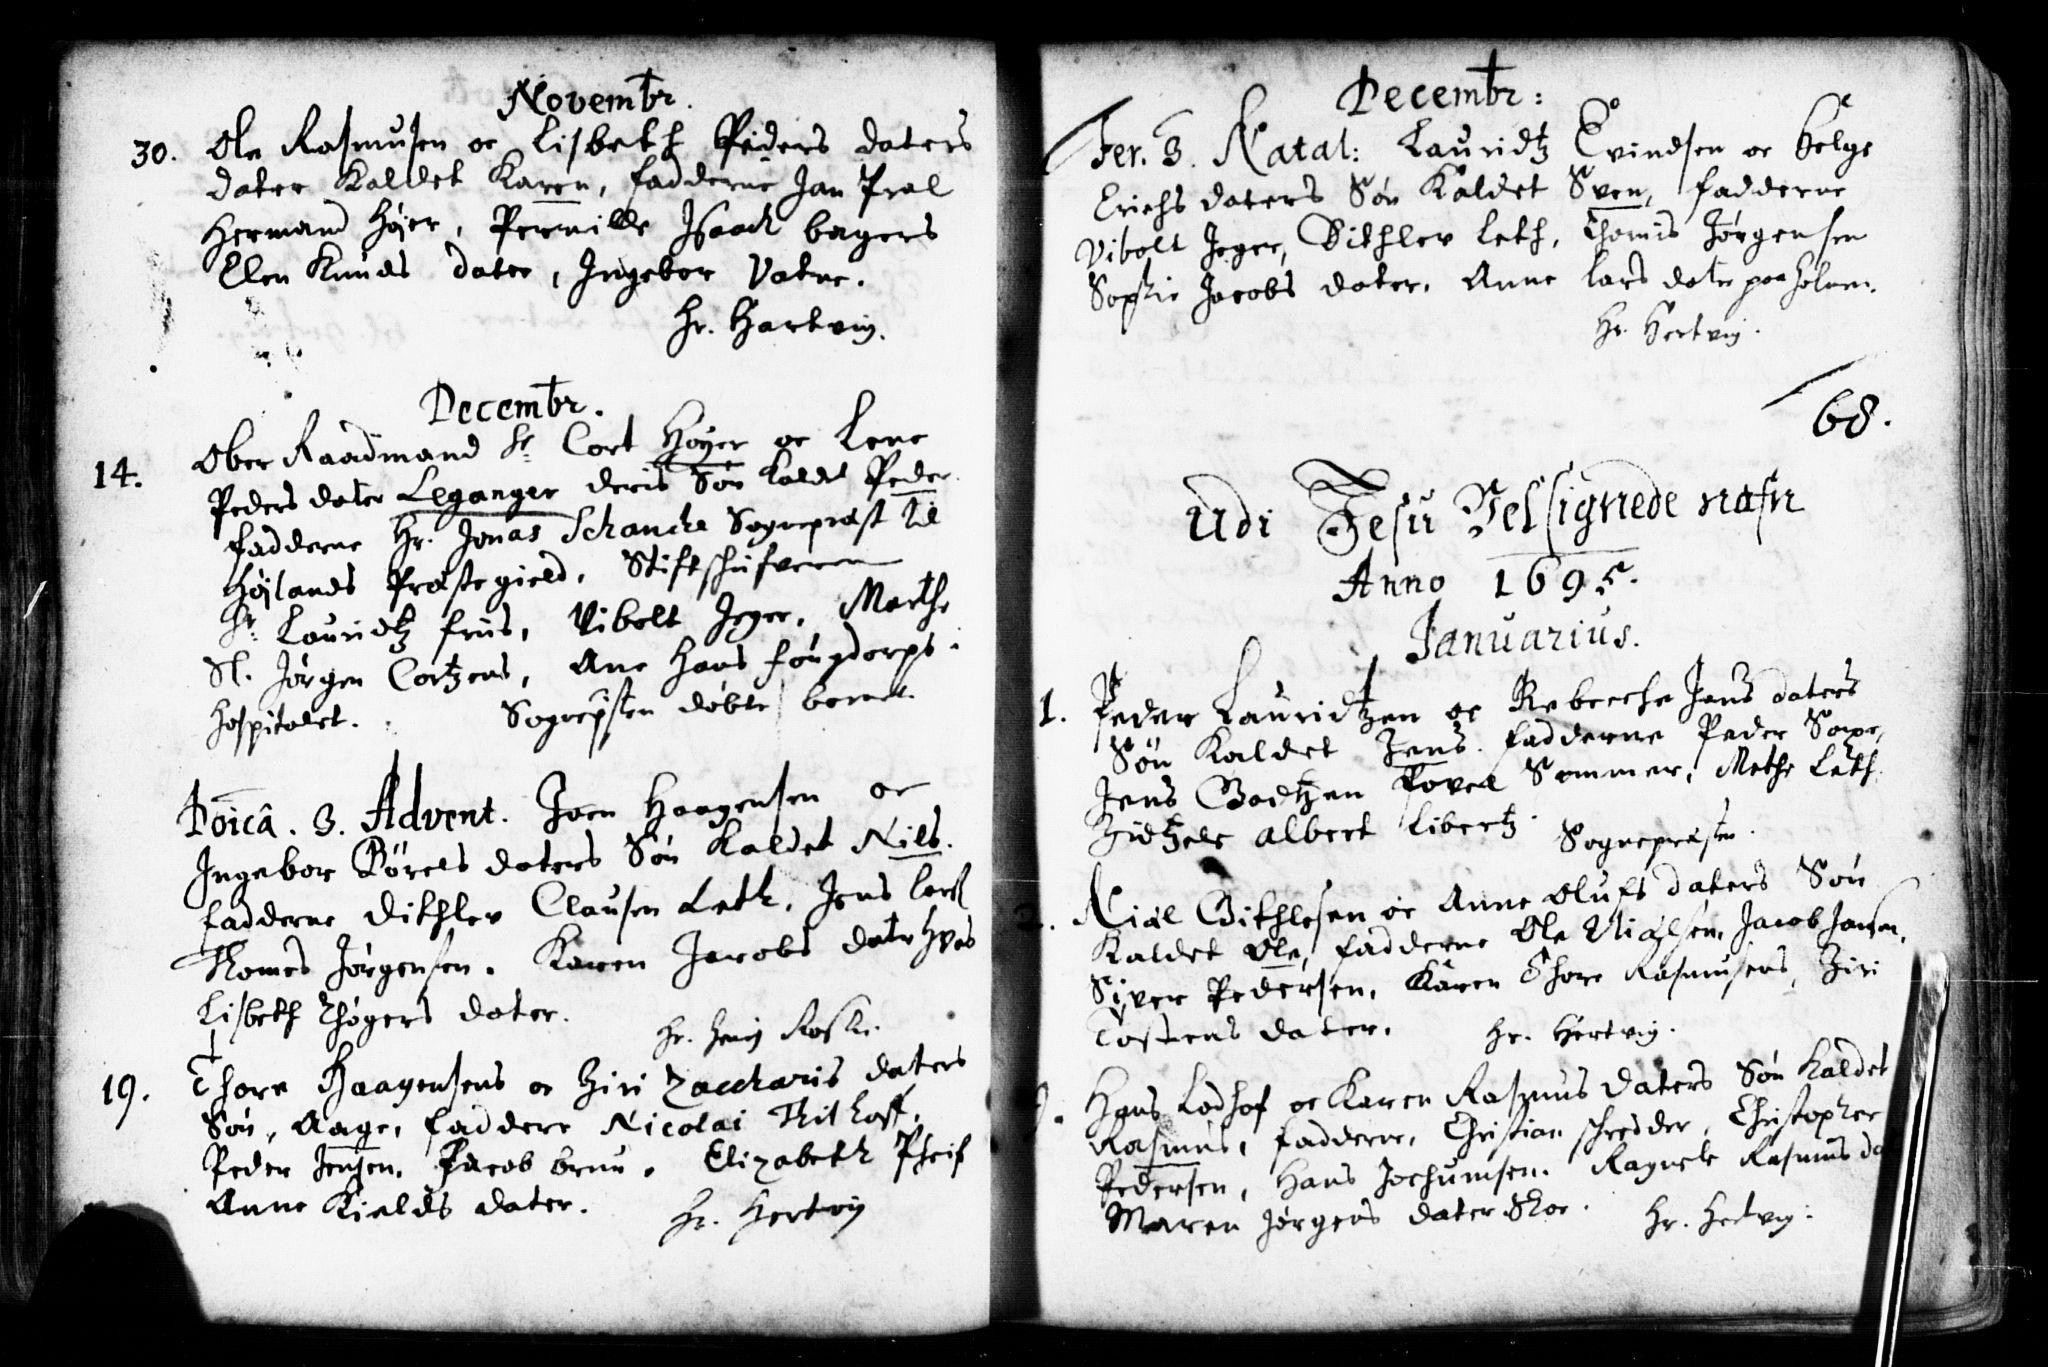 Novembr.
30. Ole Rasmusen oc Lisbeth Peders daters
dater Kaldet Karen, fadderne Jan Pral
Hermand Höjer, Pernille Isaach bagers
Elen Knuds dater, Ingebor Vatne.
Hr. Hartvig.
Decembr.
14. Ober Raadmand Sr Cort Höyer oc Lene
Peders dater Leganger deris Sön kaldt Peder.
fadderne Hr. Jonas Schancke Sognepræst til
Höjlands Præstegield, Stiftschrifveren
Sr Lauridtz friis, Vibolt Jeger, Marthe
Sl. Jörgen Cortzens, Ane Hans
Hospitalet. Sognepsten döbte barnet.
Doicâ. 3. Advent. Joen Haagensen oc
Ingebor Börels daters Sön kaldet Nils.
fadderne Dithlev Clausen Leth, Jens
Thomes Jörgensen. Karen Jacobs dater
Lisbeth Thögers dater.
Hr.
19. Thore Haagensens oc Ziri Zaccharis daters
Sön, Aage, faddere Nicolai
Peder Jensen, Jacob brun, Elizabeth Pheif
Anne Kields dater. Hr. Hertvig
Decembr:
Fer. 3. Natal: Lauridtz Evindsen oc Helge
Erichs daters Sön Kaldet Sven, fadderne
Vibolt Jeger, Dithlev Leth, Thomis Jörgensen
Sophie Jacobs dater, Anne Lars dater paa holmen.
Hr. Hertvig.
68.
Udi Jesu Velsignede nafn
Anno 1695.
Januarius.
1. Peder Lauridtzen oc Rebecche Jens daters
Sön Kaldet Jens. fadderne Peder
Jens Povel Sommer, Methe Leth
Zidtzele Albert Libertz. Sognepræsten.
2. Niæl Githlesen oc Anne Olufs daters Sön
Kaldet Ole, fadderne Ole Niælsen, Jacob Jansen,
Siver Pedersen, Karen Thore Rasmusens, Ziri
Tostens dater. Hr. Hertvig.
Hans Lodhof oc Karen Rasmus daters Sön Kaldet
Rasmus, fadderne, Christian schredder, Christopher
Pedersen, Hans Jochumsen. Ragnele Rasmus da
Maren Jörgens dater Hr. Hertvig.